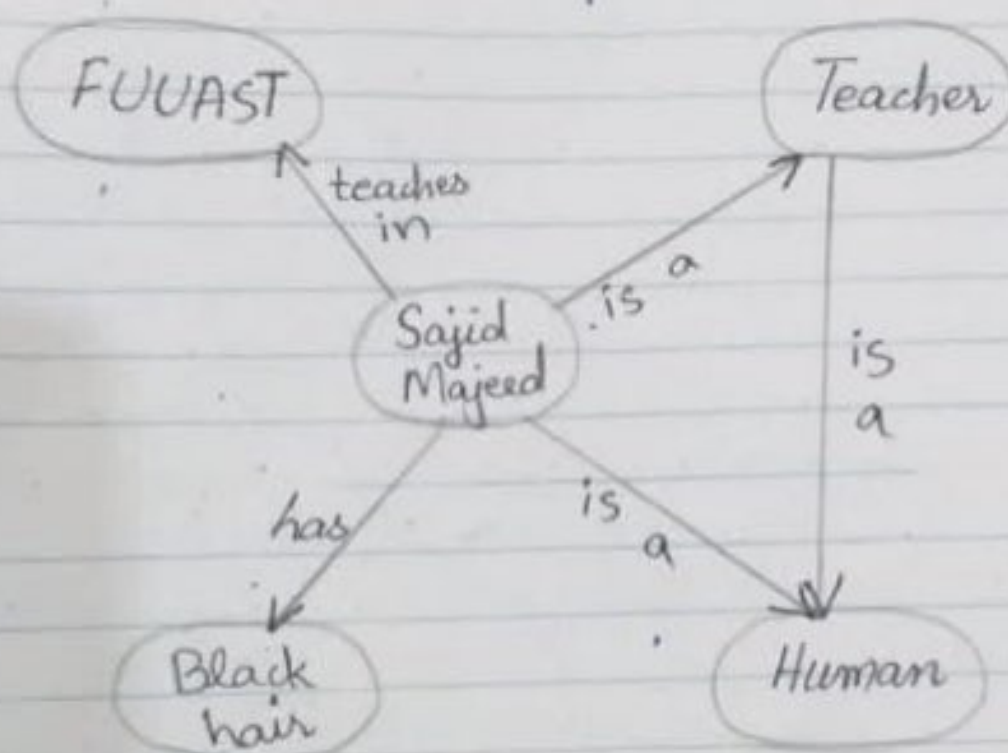 FUUAST
Teacher
teaches
in
is a
Sajid
Majeed
is
a
has
is
a
Black
hair
Human